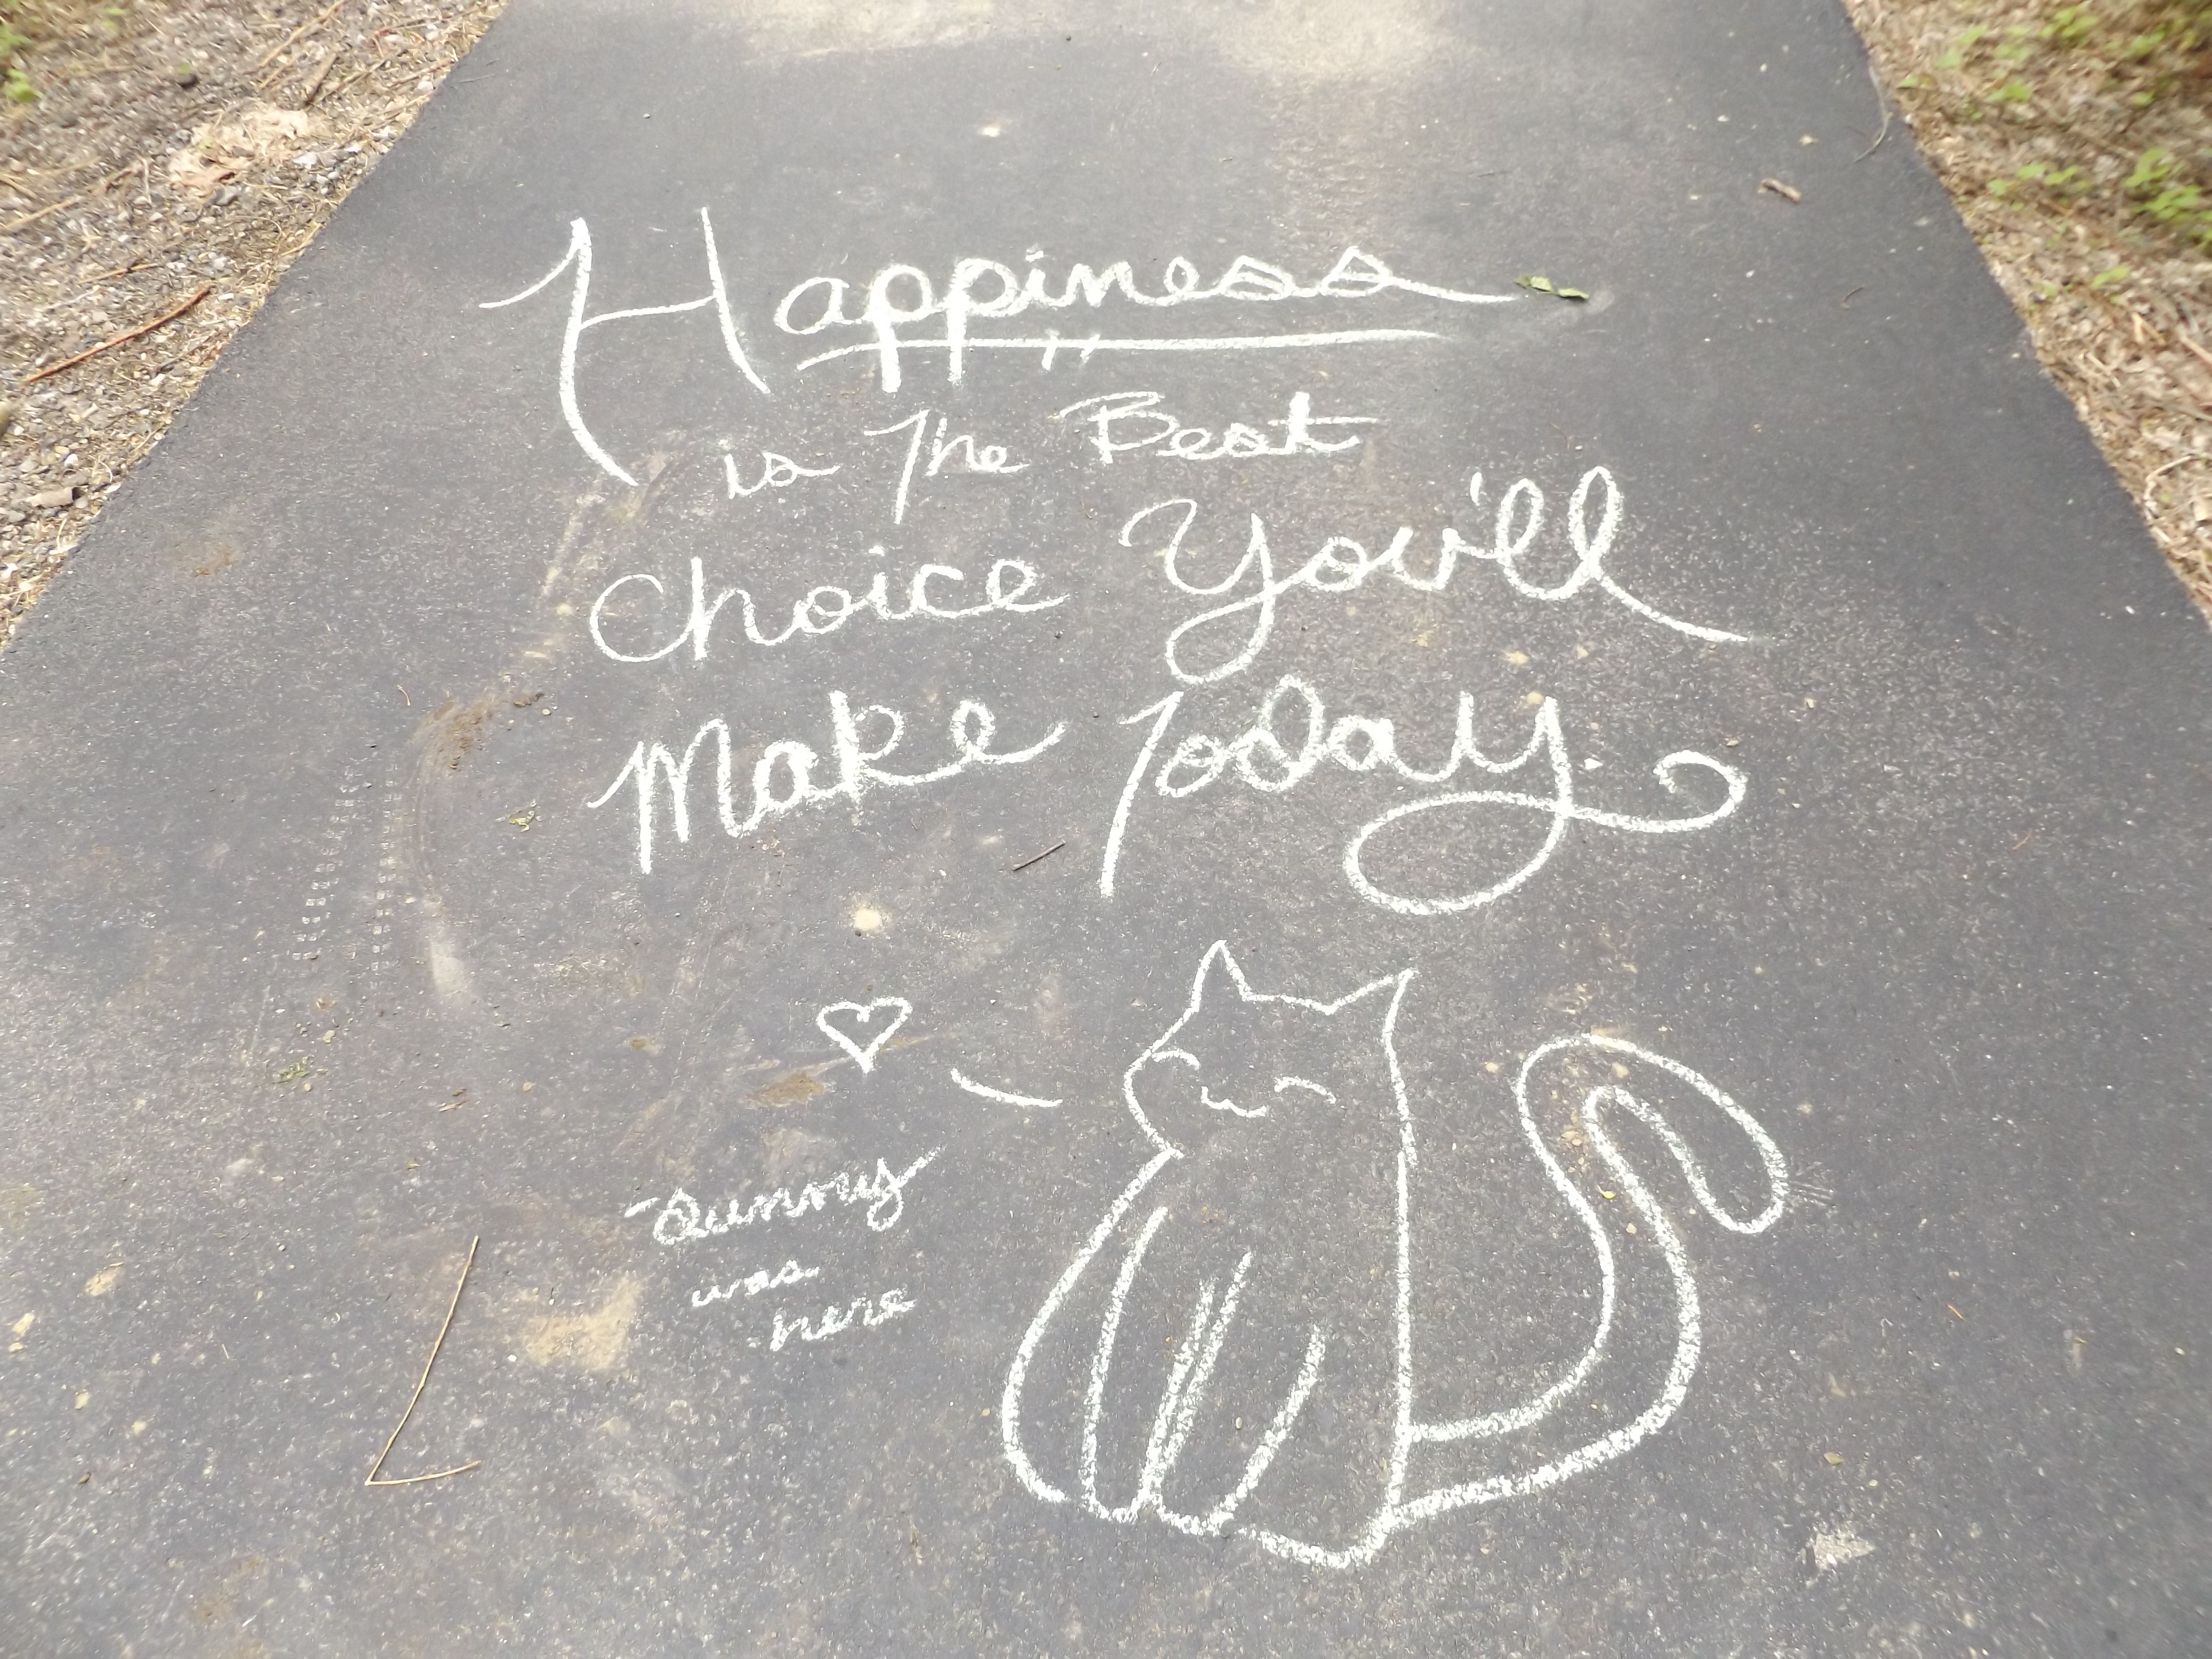 Happiness
is The Best
Choice You'll
Make Today
Sunny
was
here